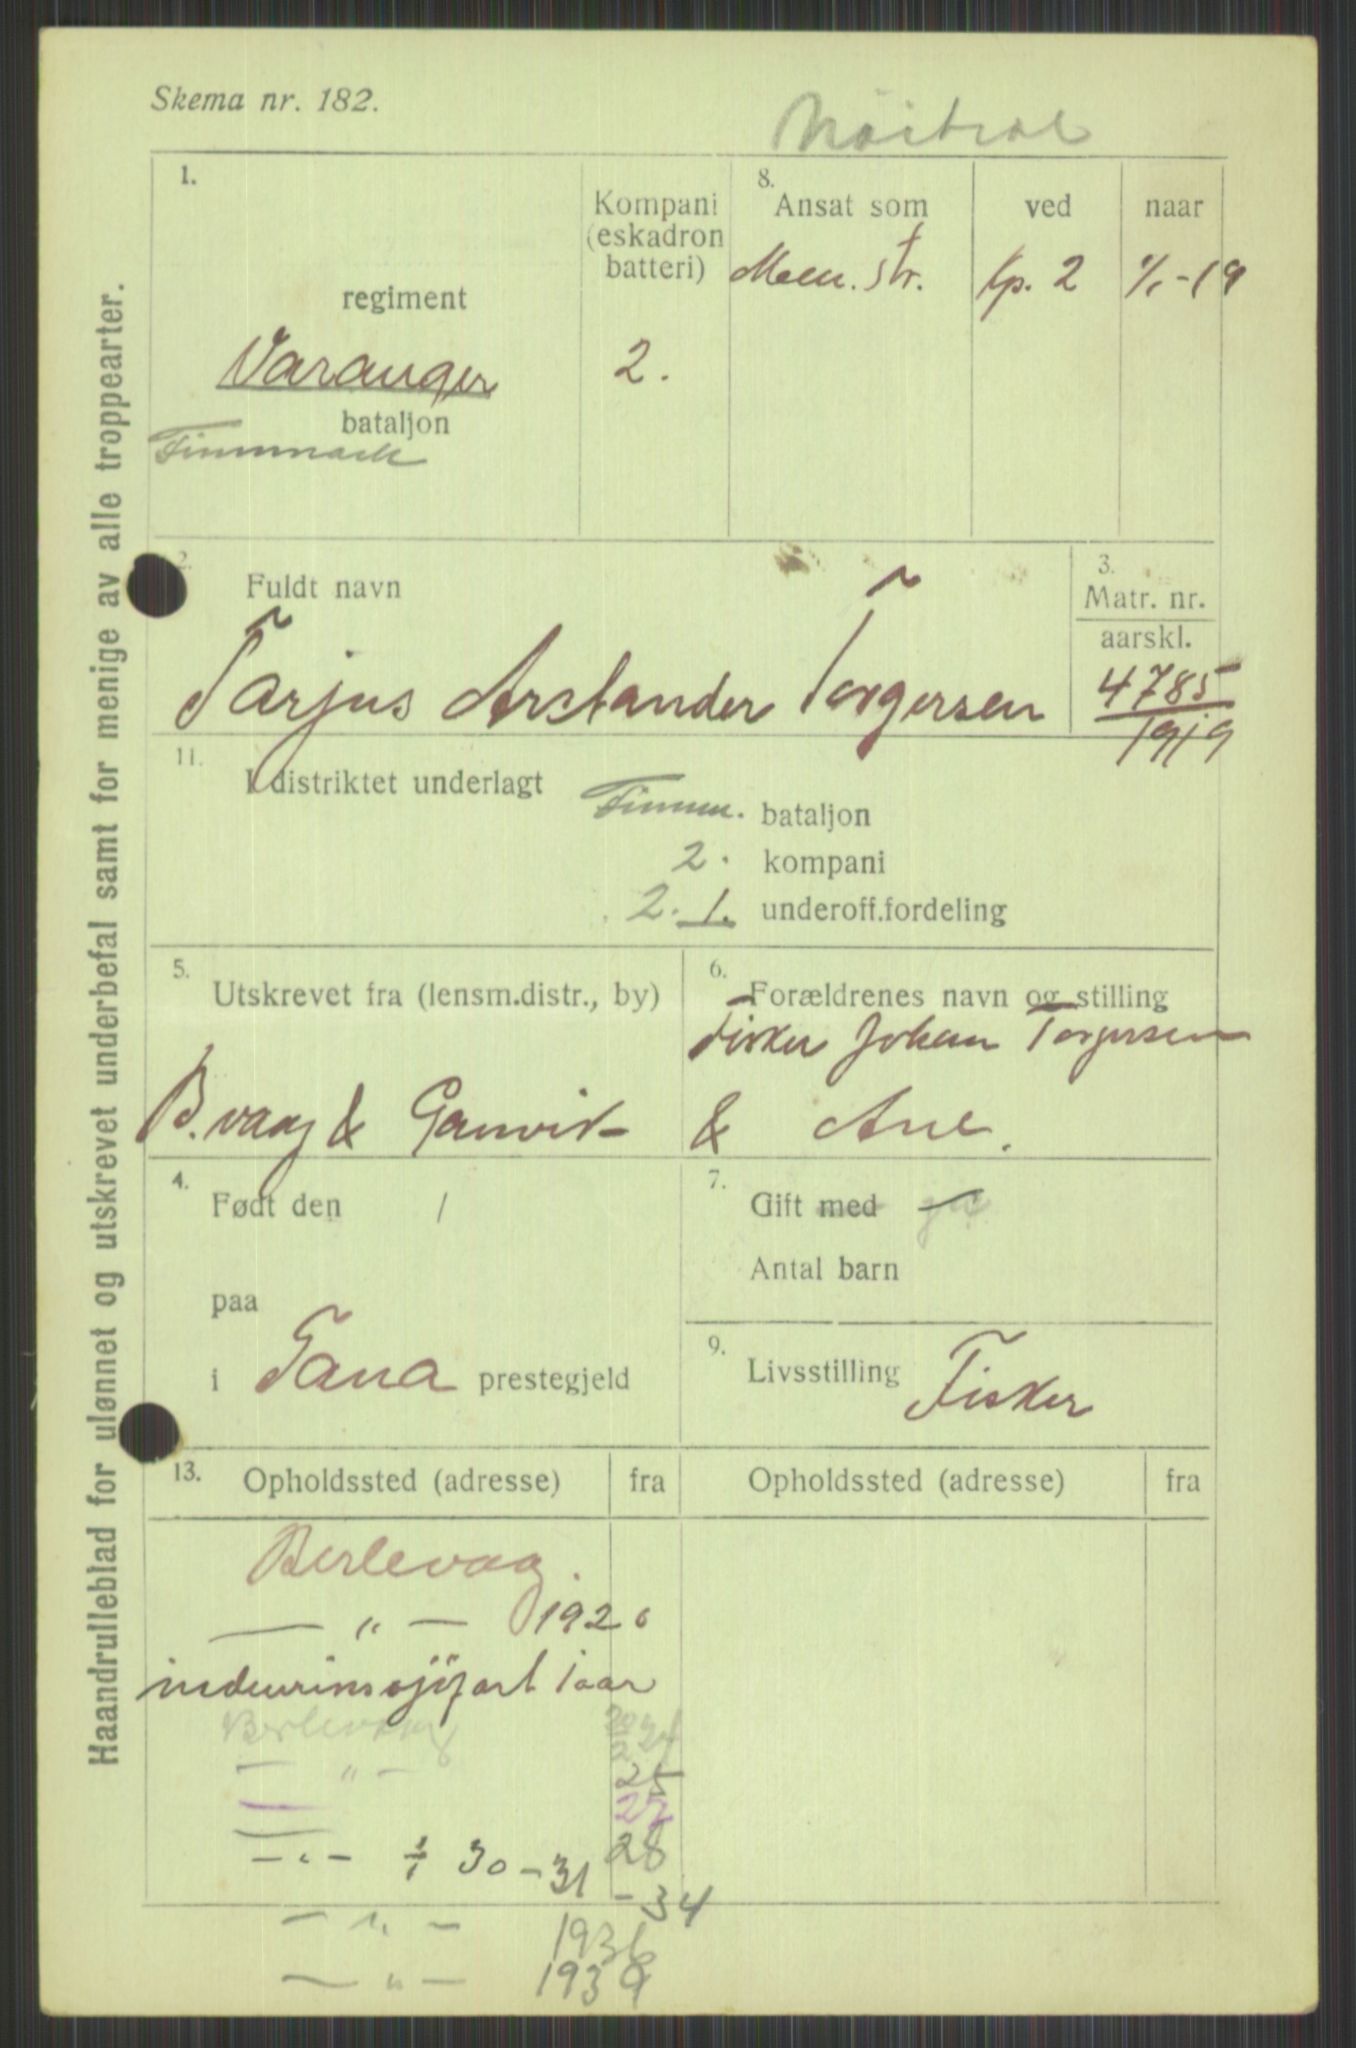 Skema nr. 182.
Nöitral
Haandrulleblad for ulønnet og utskrevet underbefal samt for menige av alle troppearter.
1.
regiment
Varanger
bataljon
Finnmark
Kompani
(eskadron
batteri)
2.
8.
Ansat som
Men. str.
ved
kp. 2
naar
1/1-19
2.
Fuldt navn
Tarjus Torgersen
3.
Matr. nr.
aarskl.
4785
1919
11.
I distriktet underlagt
Finnm. bataljon
2. kompani
2. 1. underoff.fordeling
5.
Utskrevet fra (lensm.distr., by)
B.vaag & Gamvik
6.
Forældrenes navn og stilling
Fisker Johan Torgersen
& Ane.
4.
Født den /
paa
i Tana prestegjeld
7.
Gift med
Antal barn
9.
Livsstilling Fisker
13.
Opholdssted (adresse) fra
Opholdssted (adresse) fra
Berlevaag.
— " — 1920
1 aar
Berlevaag
— " — 25
— 27
— 28
— " — 1/1 30-31
- 34
— " — 1936
— " — 1939